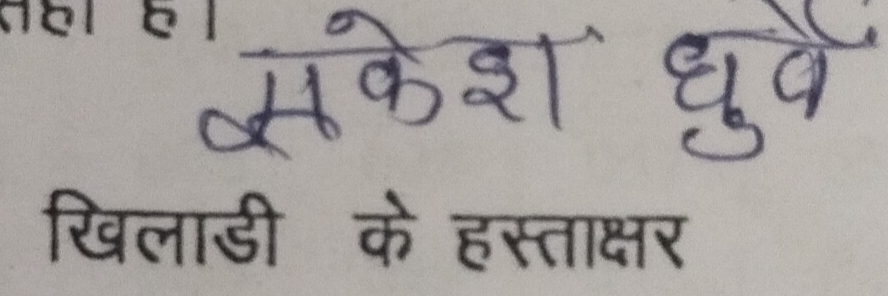 है।
मुकेश धुर्वे
खिलाडी के हस्ताक्षर